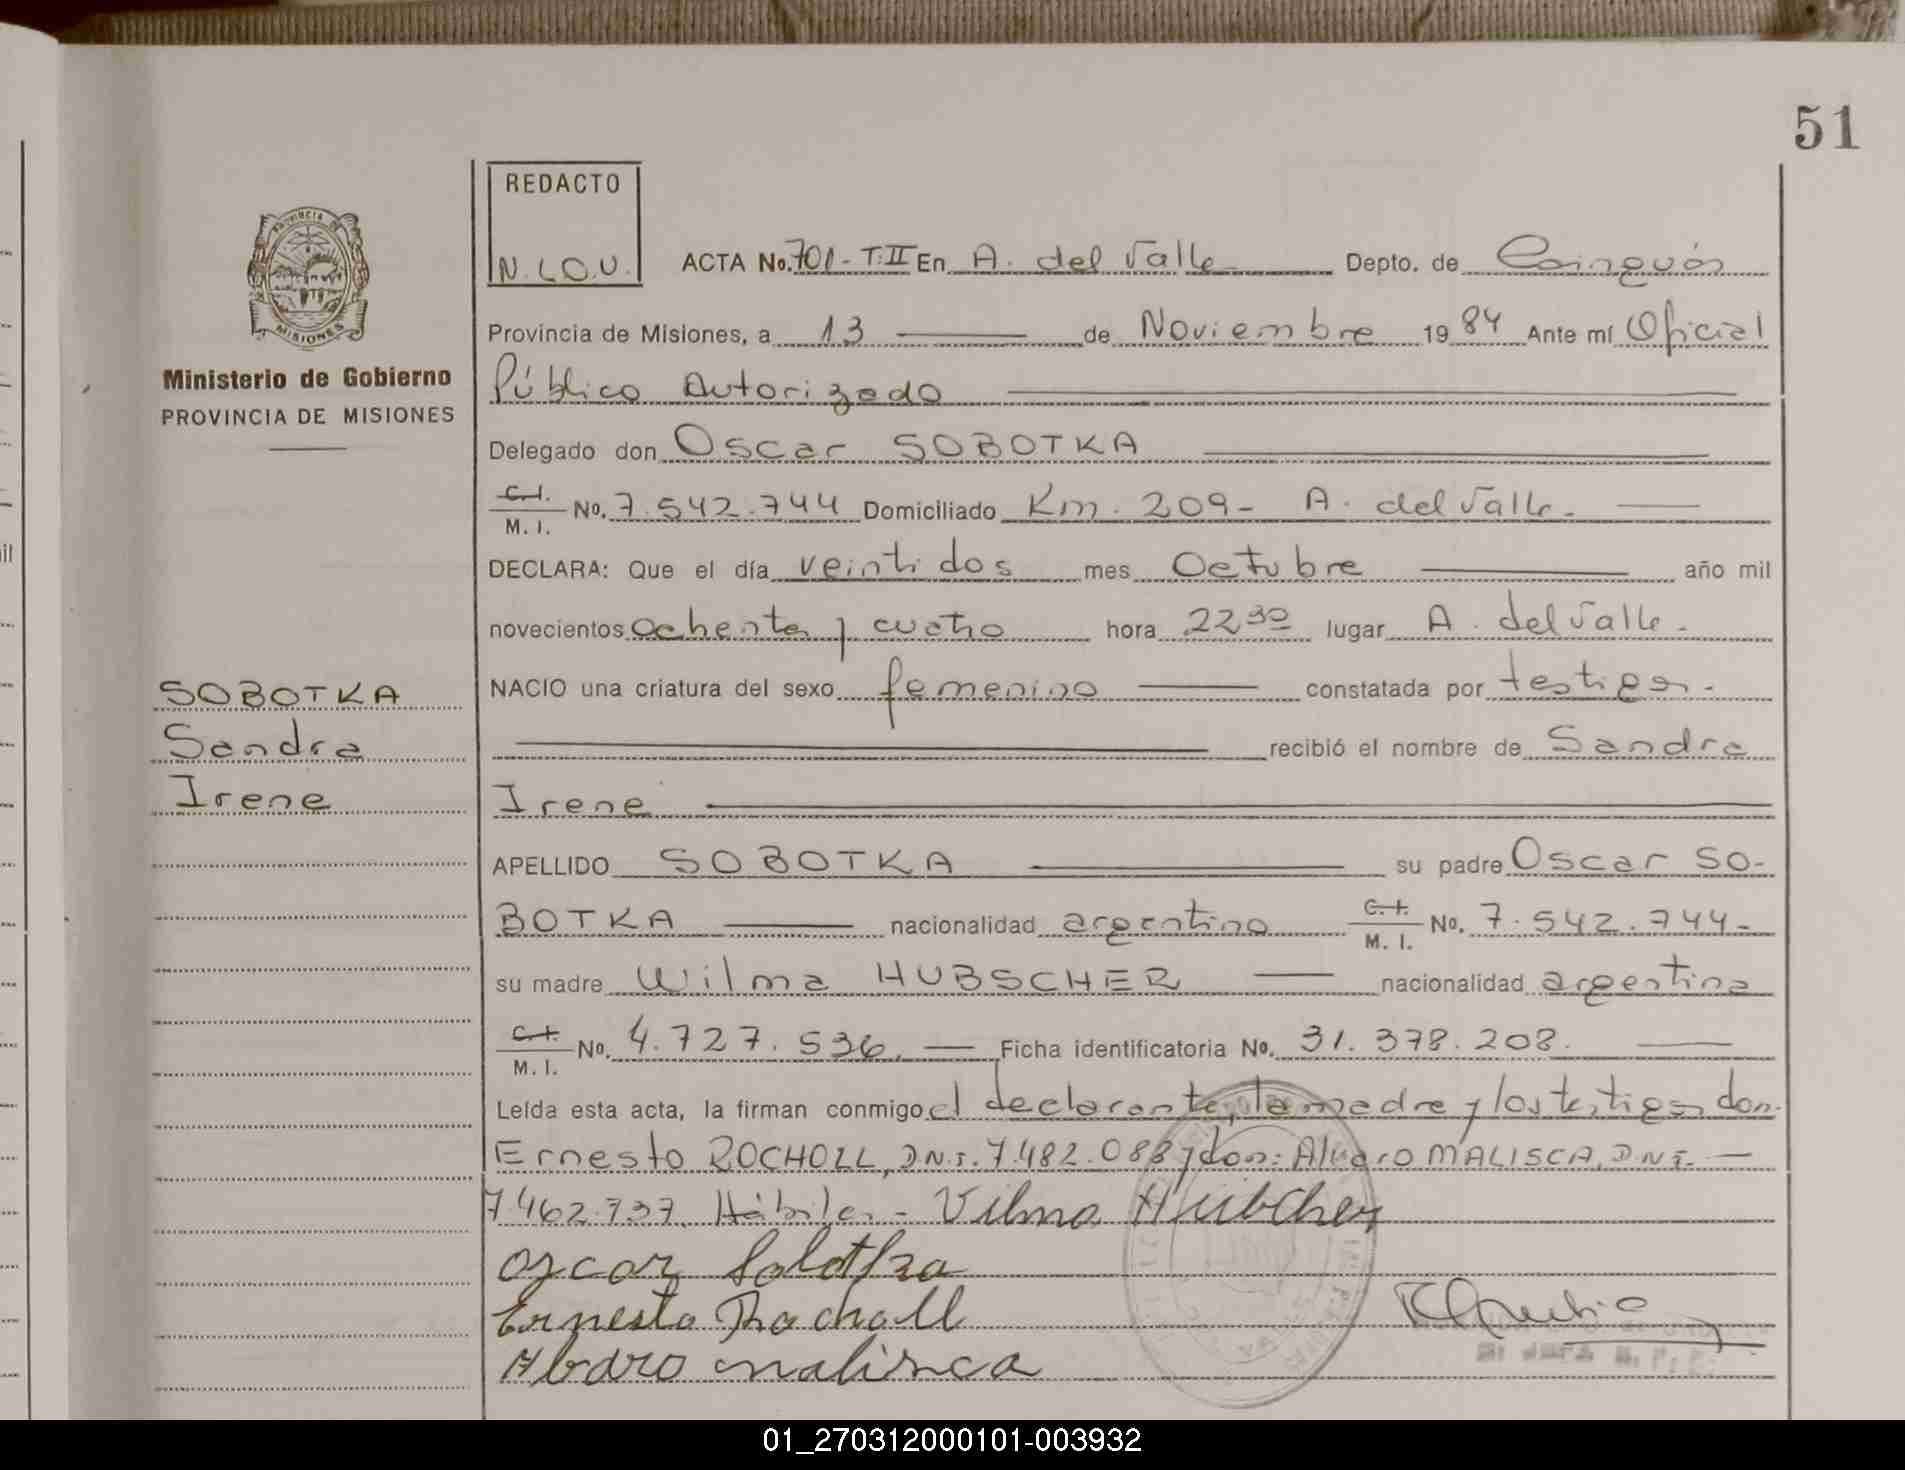 51
REDACTO
N.L.O.U.
ACTA No. 701 - T: II En A. del Valle Depto. de Cainguás
PROVINCIA DE
MISIONES
Provincia de Misiones, a 13 de Noviembre 1984 Ante mí Oficial
Ministerio de Gobierno
PROVINCIA DE MISIONES
Público Autorizado
Delegado don Oscar SOBOTKA
C. I.
M. I. No. 7.542.744 Domiciliado Km. 209- A. del Valle.
DECLARA: Que el día veintidos mes Octubre año mil
novecientos ochenta y cuatro hora 22 30 lugar A. del Valle.
SOBOTKA
Sandra
Irene
NACIO una criatura del sexo femenino constatada por testigos.
recibió el nombre de Sandra
Irene
APELLIDO SOBOTKA su padre Oscar SO-
BOTKA nacionalidad argentino C. I. M. I. No. 7.542.744-
su madre Wilma HUBSCHER nacionalidad argentina
C. I.
M. I. No. 4.727.536. Ficha identificatoria No. 31.378.208.
Leída esta acta, la firman conmigo el declarante, la madre y los testigos don.
Ernesto ROCHOLL, D.N.I. 7.482.088 y don: Alvaro MALISCA, D.N.I.
7.462.737. Hábiles.- Vilma Hübcher
Oscar Sobotka
Ernesto Rocholl
Alvaro malisca
01_270312000101-003932